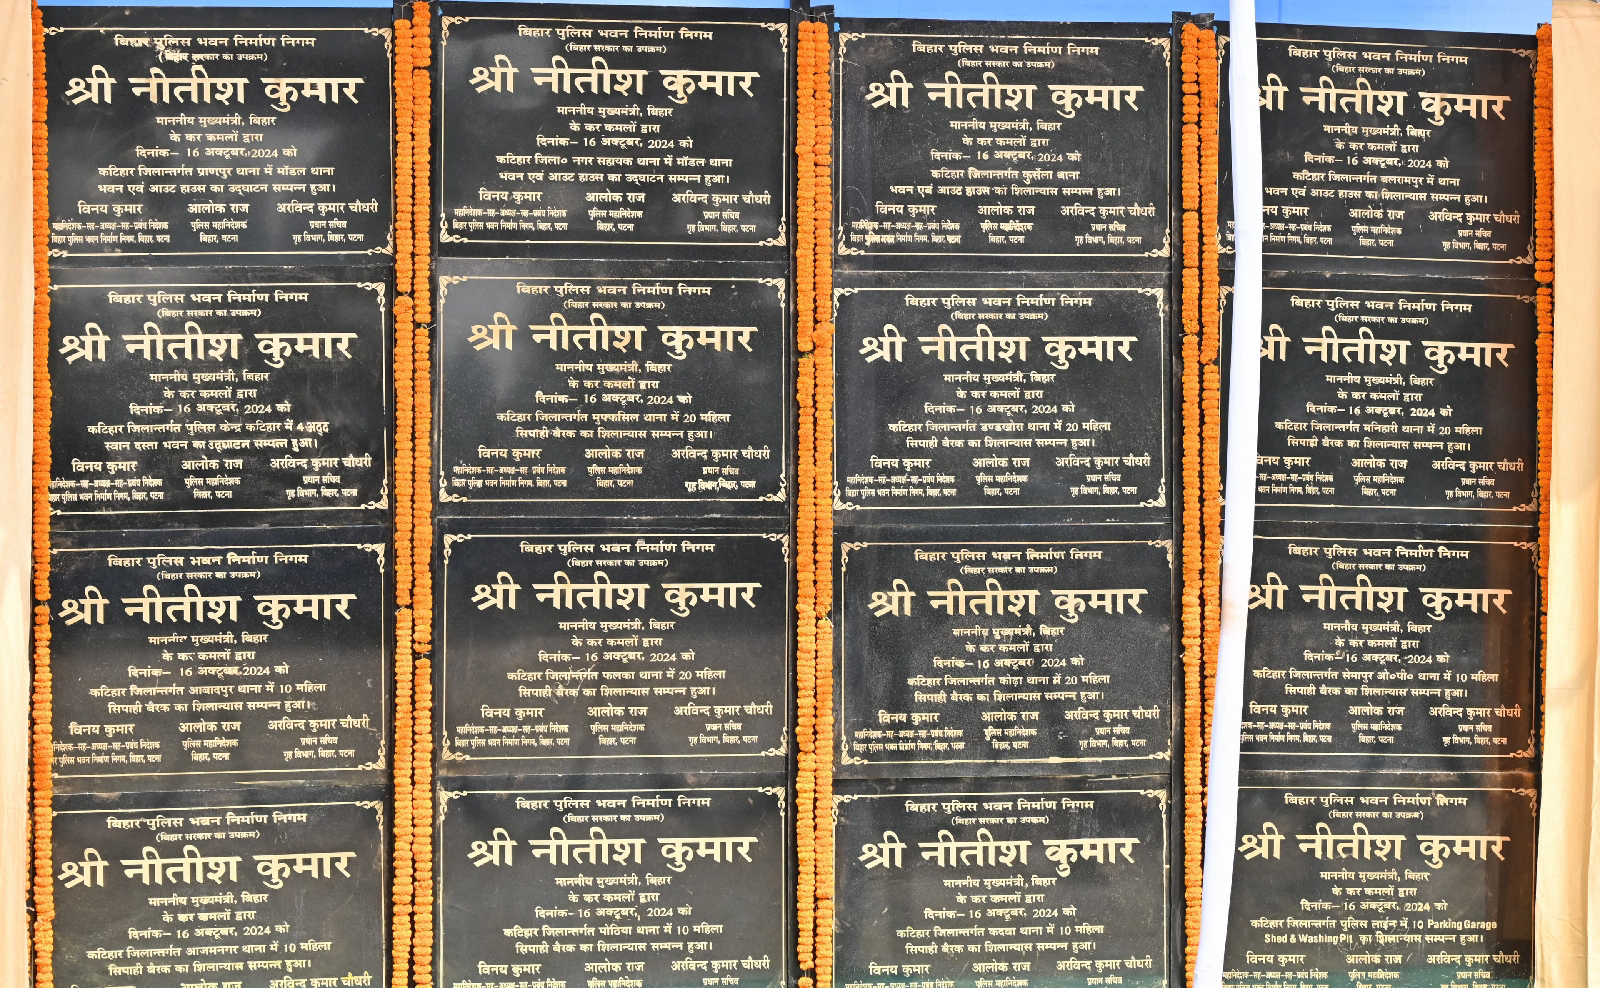 बिहार पुलिस भवन निर्माण निगम
(बिहार सरकार का उपक्रम)
श्री नीतीश कुमार
माननीय मुख्यमंत्री, बिहार
के कर कमलों द्वारा
दिनांक– 16 अक्टूबर, 2024 को
कटिहार जिलान्तर्गत प्राणपुर थाना में मॉडल थाना
भवन एवं आउट हाउस का उद्घाटन सम्पन्न हुआ।
विनय कुमार आलोक राज अरविन्द कुमार चौधरी
महानिदेशक–सह–अध्यक्ष–सह–प्रबंध निदेशक पुलिस महानिदेशक प्रधान सचिव
बिहार पुलिस भवन निर्माण निगम, बिहार, पटना बिहार, पटना गृह विभाग, बिहार, पटना
बिहार पुलिस भवन निर्माण निगम
(बिहार सरकार का उपक्रम)
श्री नीतीश कुमार
माननीय मुख्यमंत्री, बिहार
के कर कमलों द्वारा
दिनांक– 16 अक्टूबर, 2024 को
कटिहार जिला० नगर सहायक थाना में मॉडल थाना
भवन एवं आउट हाउस का उद्घाटन सम्पन्न हुआ।
विनय कुमार आलोक राज अरविन्द कुमार चौधरी
महानिदेशक–सह–अध्यक्ष–सह–प्रबंध निदेशक पुलिस महानिदेशक प्रधान सचिव
बिहार पुलिस भवन निर्माण निगम, बिहार, पटना बिहार, पटना गृह विभाग, बिहार, पटना
बिहार पुलिस भवन निर्माण निगम
(बिहार सरकार का उपक्रम)
श्री नीतीश कुमार
माननीय मुख्यमंत्री, बिहार
के कर कमलों द्वारा
दिनांक– 16 अक्टूबर, 2024 को
कटिहार जिलान्तर्गत कुर्सेला थाना
भवन एवं आउट हाउस का शिलान्यास सम्पन्न हुआ।
विनय कुमार आलोक राज अरविन्द कुमार चौधरी
महानिदेशक–सह–अध्यक्ष–सह–प्रबंध निदेशक पुलिस महानिदेशक प्रधान सचिव
बिहार पुलिस भवन निर्माण निगम, बिहार, पटना बिहार, पटना गृह विभाग, बिहार, पटना
बिहार पुलिस भवन निर्माण निगम
(बिहार सरकार का उपक्रम)
श्री नीतीश कुमार
माननीय मुख्यमंत्री, बिहार
के कर कमलों द्वारा
दिनांक– 16 अक्टूबर, 2024 को
कटिहार जिलान्तर्गत बलरामपुर में थाना
भवन एवं आउट हाउस का शिलान्यास सम्पन्न हुआ।
कुमार आलोक राज अरविन्द कुमार चौधरी
सह–अध्यक्ष–सह–प्रबंध निदेशक पुलिस महानिदेशक प्रधान सचिव
भवन निर्माण निगम, बिहार, पटना बिहार, पटना गृह विभाग, बिहार, पटना
बिहार पुलिस भवन निर्माण निगम
(बिहार सरकार का उपक्रम)
श्री नीतीश कुमार
माननीय मुख्यमंत्री, बिहार
के कर कमलों द्वारा
दिनांक– 16 अक्टूबर, 2024 को
कटिहार जिलान्तर्गत पुलिस केन्द्र कटिहार में 4 अदद
स्वान दस्ता भवन का उद्घाटन सम्पन्न हुआ।
विनय कुमार आलोक राज अरविन्द कुमार चौधरी
महानिदेशक–सह–अध्यक्ष–सह–प्रबंध निदेशक पुलिस महानिदेशक प्रधान सचिव
पुलिस भवन निर्माण निगम, बिहार, पटना बिहार, पटना गृह विभाग, बिहार, पटना
बिहार पुलिस भवन निर्माण निगम
(बिहार सरकार का उपक्रम)
श्री नीतीश कुमार
माननीय मुख्यमंत्री, बिहार
के कर कमलों द्वारा
दिनांक– 16 अक्टूबर, 2024 को
कटिहार जिलान्तर्गत मुफ्फसिल थाना में 20 महिला
सिपाही बैरक का शिलान्यास सम्पन्न हुआ।
विनय कुमार आलोक राज अरविन्द कुमार चौधरी
महानिदेशक–सह–अध्यक्ष–सह–प्रबंध निदेशक पुलिस महानिदेशक प्रधान सचिव
बिहार पुलिस भवन निर्माण निगम, बिहार, पटना बिहार, पटना गृह विभाग, बिहार, पटना
बिहार पुलिस भवन निर्माण निगम
(बिहार सरकार का उपक्रम)
श्री नीतीश कुमार
माननीय मुख्यमंत्री, बिहार
के कर कमलों द्वारा
दिनांक– 16 अक्टूबर, 2024 को
कटिहार जिलान्तर्गत डण्डखोरा थाना में 20 महिला
सिपाही बैरक का शिलान्यास सम्पन्न हुआ।
विनय कुमार आलोक राज अरविन्द कुमार चौधरी
महानिदेशक–सह–अध्यक्ष–सह–प्रबंध निदेशक पुलिस महानिदेशक प्रधान सचिव
बिहार पुलिस भवन निर्माण निगम, बिहार, पटना बिहार, पटना गृह विभाग, बिहार, पटना
बिहार पुलिस भवन निर्माण निगम
(बिहार सरकार का उपक्रम)
श्री नीतीश कुमार
माननीय मुख्यमंत्री, बिहार
के कर कमलों द्वारा
दिनांक– 16 अक्टूबर, 2024 को
कटिहार जिलान्तर्गत मनिहारी थाना में 20 महिला
सिपाही बैरक का शिलान्यास सम्पन्न हुआ।
विनय कुमार आलोक राज अरविन्द कुमार चौधरी
सह–अध्यक्ष–सह–प्रबंध निदेशक पुलिस महानिदेशक प्रधान सचिव
भवन निर्माण निगम, बिहार, पटना बिहार, पटना गृह विभाग, बिहार, पटना
बिहार पुलिस भवन निर्माण निगम
(बिहार सरकार का उपक्रम)
श्री नीतीश कुमार
माननीय मुख्यमंत्री, बिहार
के कर कमलों द्वारा
दिनांक– 16 अक्टूबर, 2024 को
कटिहार जिलान्तर्गत आबादपुर थाना में 10 महिला
सिपाही बैरक का शिलान्यास सम्पन्न हुआ।
विनय कुमार आलोक राज अरविन्द कुमार चौधरी
निदेशक–सह–अध्यक्ष–सह–प्रबंध निदेशक पुलिस महानिदेशक प्रधान सचिव
पुलिस भवन निर्माण निगम, बिहार, पटना बिहार, पटना गृह विभाग, बिहार, पटना
बिहार पुलिस भवन निर्माण निगम
(बिहार सरकार का उपक्रम)
श्री नीतीश कुमार
माननीय मुख्यमंत्री, बिहार
के कर कमलों द्वारा
दिनांक– 16 अक्टूबर, 2024 को
कटिहार जिलान्तर्गत फलका थाना में 20 महिला
सिपाही बैरक का शिलान्यास सम्पन्न हुआ।
विनय कुमार आलोक राज अरविन्द कुमार चौधरी
महानिदेशक–सह–अध्यक्ष–सह–प्रबंध निदेशक पुलिस महानिदेशक प्रधान सचिव
बिहार पुलिस भवन निर्माण निगम, बिहार, पटना बिहार, पटना गृह विभाग, बिहार, पटना
बिहार पुलिस भवन निर्माण निगम
(बिहार सरकार का उपक्रम)
श्री नीतीश कुमार
माननीय मुख्यमंत्री, बिहार
के कर कमलों द्वारा
दिनांक– 16 अक्टूबर, 2024 को
कटिहार जिलान्तर्गत कोढ़ा थाना में 20 महिला
सिपाही बैरक का शिलान्यास सम्पन्न हुआ।
विनय कुमार आलोक राज अरविन्द कुमार चौधरी
महानिदेशक–सह–अध्यक्ष–सह–प्रबंध निदेशक पुलिस महानिदेशक प्रधान सचिव
बिहार पुलिस भवन निर्माण निगम, बिहार, पटना बिहार, पटना गृह विभाग, बिहार, पटना
बिहार पुलिस भवन निर्माण निगम
(बिहार सरकार का उपक्रम)
श्री नीतीश कुमार
माननीय मुख्यमंत्री, बिहार
के कर कमलों द्वारा
दिनांक– 16 अक्टूबर, 2024 को
कटिहार जिलान्तर्गत सेमापुर ओ०पी० थाना में 10 महिला
सिपाही बैरक का शिलान्यास सम्पन्न हुआ।
विनय कुमार आलोक राज अरविन्द कुमार चौधरी
सह–अध्यक्ष–सह–प्रबंध निदेशक पुलिस महानिदेशक प्रधान सचिव
पुलिस भवन निर्माण निगम, बिहार, पटना बिहार, पटना गृह विभाग, बिहार, पटना
बिहार पुलिस भवन निर्माण निगम
(बिहार सरकार का उपक्रम)
श्री नीतीश कुमार
माननीय मुख्यमंत्री, बिहार
के कर कमलों द्वारा
दिनांक– 16 अक्टूबर, 2024 को
कटिहार जिलान्तर्गत आजमनगर थाना में 10 महिला
सिपाही बैरक का शिलान्यास सम्पन्न हुआ।
आलोक राज अरविन्द कुमार चौधरी
बिहार पुलिस भवन निर्माण निगम
(बिहार सरकार का उपक्रम)
श्री नीतीश कुमार
माननीय मुख्यमंत्री, बिहार
के कर कमलों द्वारा
दिनांक– 16 अक्टूबर, 2024 को
कटिहार जिलान्तर्गत पोठिया थाना में 10 महिला
सिपाही बैरक का शिलान्यास सम्पन्न हुआ।
विनय कुमार आलोक राज अरविन्द कुमार चौधरी
महानिदेशक–सह–अध्यक्ष–सह–प्रबंध निदेशक पुलिस महानिदेशक प्रधान सचिव
बिहार पुलिस भवन निर्माण निगम
(बिहार सरकार का उपक्रम)
श्री नीतीश कुमार
माननीय मुख्यमंत्री, बिहार
के कर कमलों द्वारा
दिनांक– 16 अक्टूबर, 2024 को
कटिहार जिलान्तर्गत कदवा थाना में 10 महिला
सिपाही बैरक का शिलान्यास सम्पन्न हुआ।
विनय कुमार आलोक राज अरविन्द कुमार चौधरी
महानिदेशक–सह–अध्यक्ष–सह–प्रबंध निदेशक पुलिस महानिदेशक प्रधान सचिव
बिहार पुलिस भवन निर्माण निगम
(बिहार सरकार का उपक्रम)
श्री नीतीश कुमार
माननीय मुख्यमंत्री, बिहार
के कर कमलों द्वारा
दिनांक– 16 अक्टूबर, 2024 को
कटिहार जिलान्तर्गत पुलिस लाईन में 10 Parking Garage
Shed & Washing Pit का शिलान्यास सम्पन्न हुआ।
विनय कुमार आलोक राज अरविन्द कुमार चौधरी
महानिदेशक–सह–अध्यक्ष–सह–प्रबंध निदेशक पुलिस महानिदेशक प्रधान सचिव